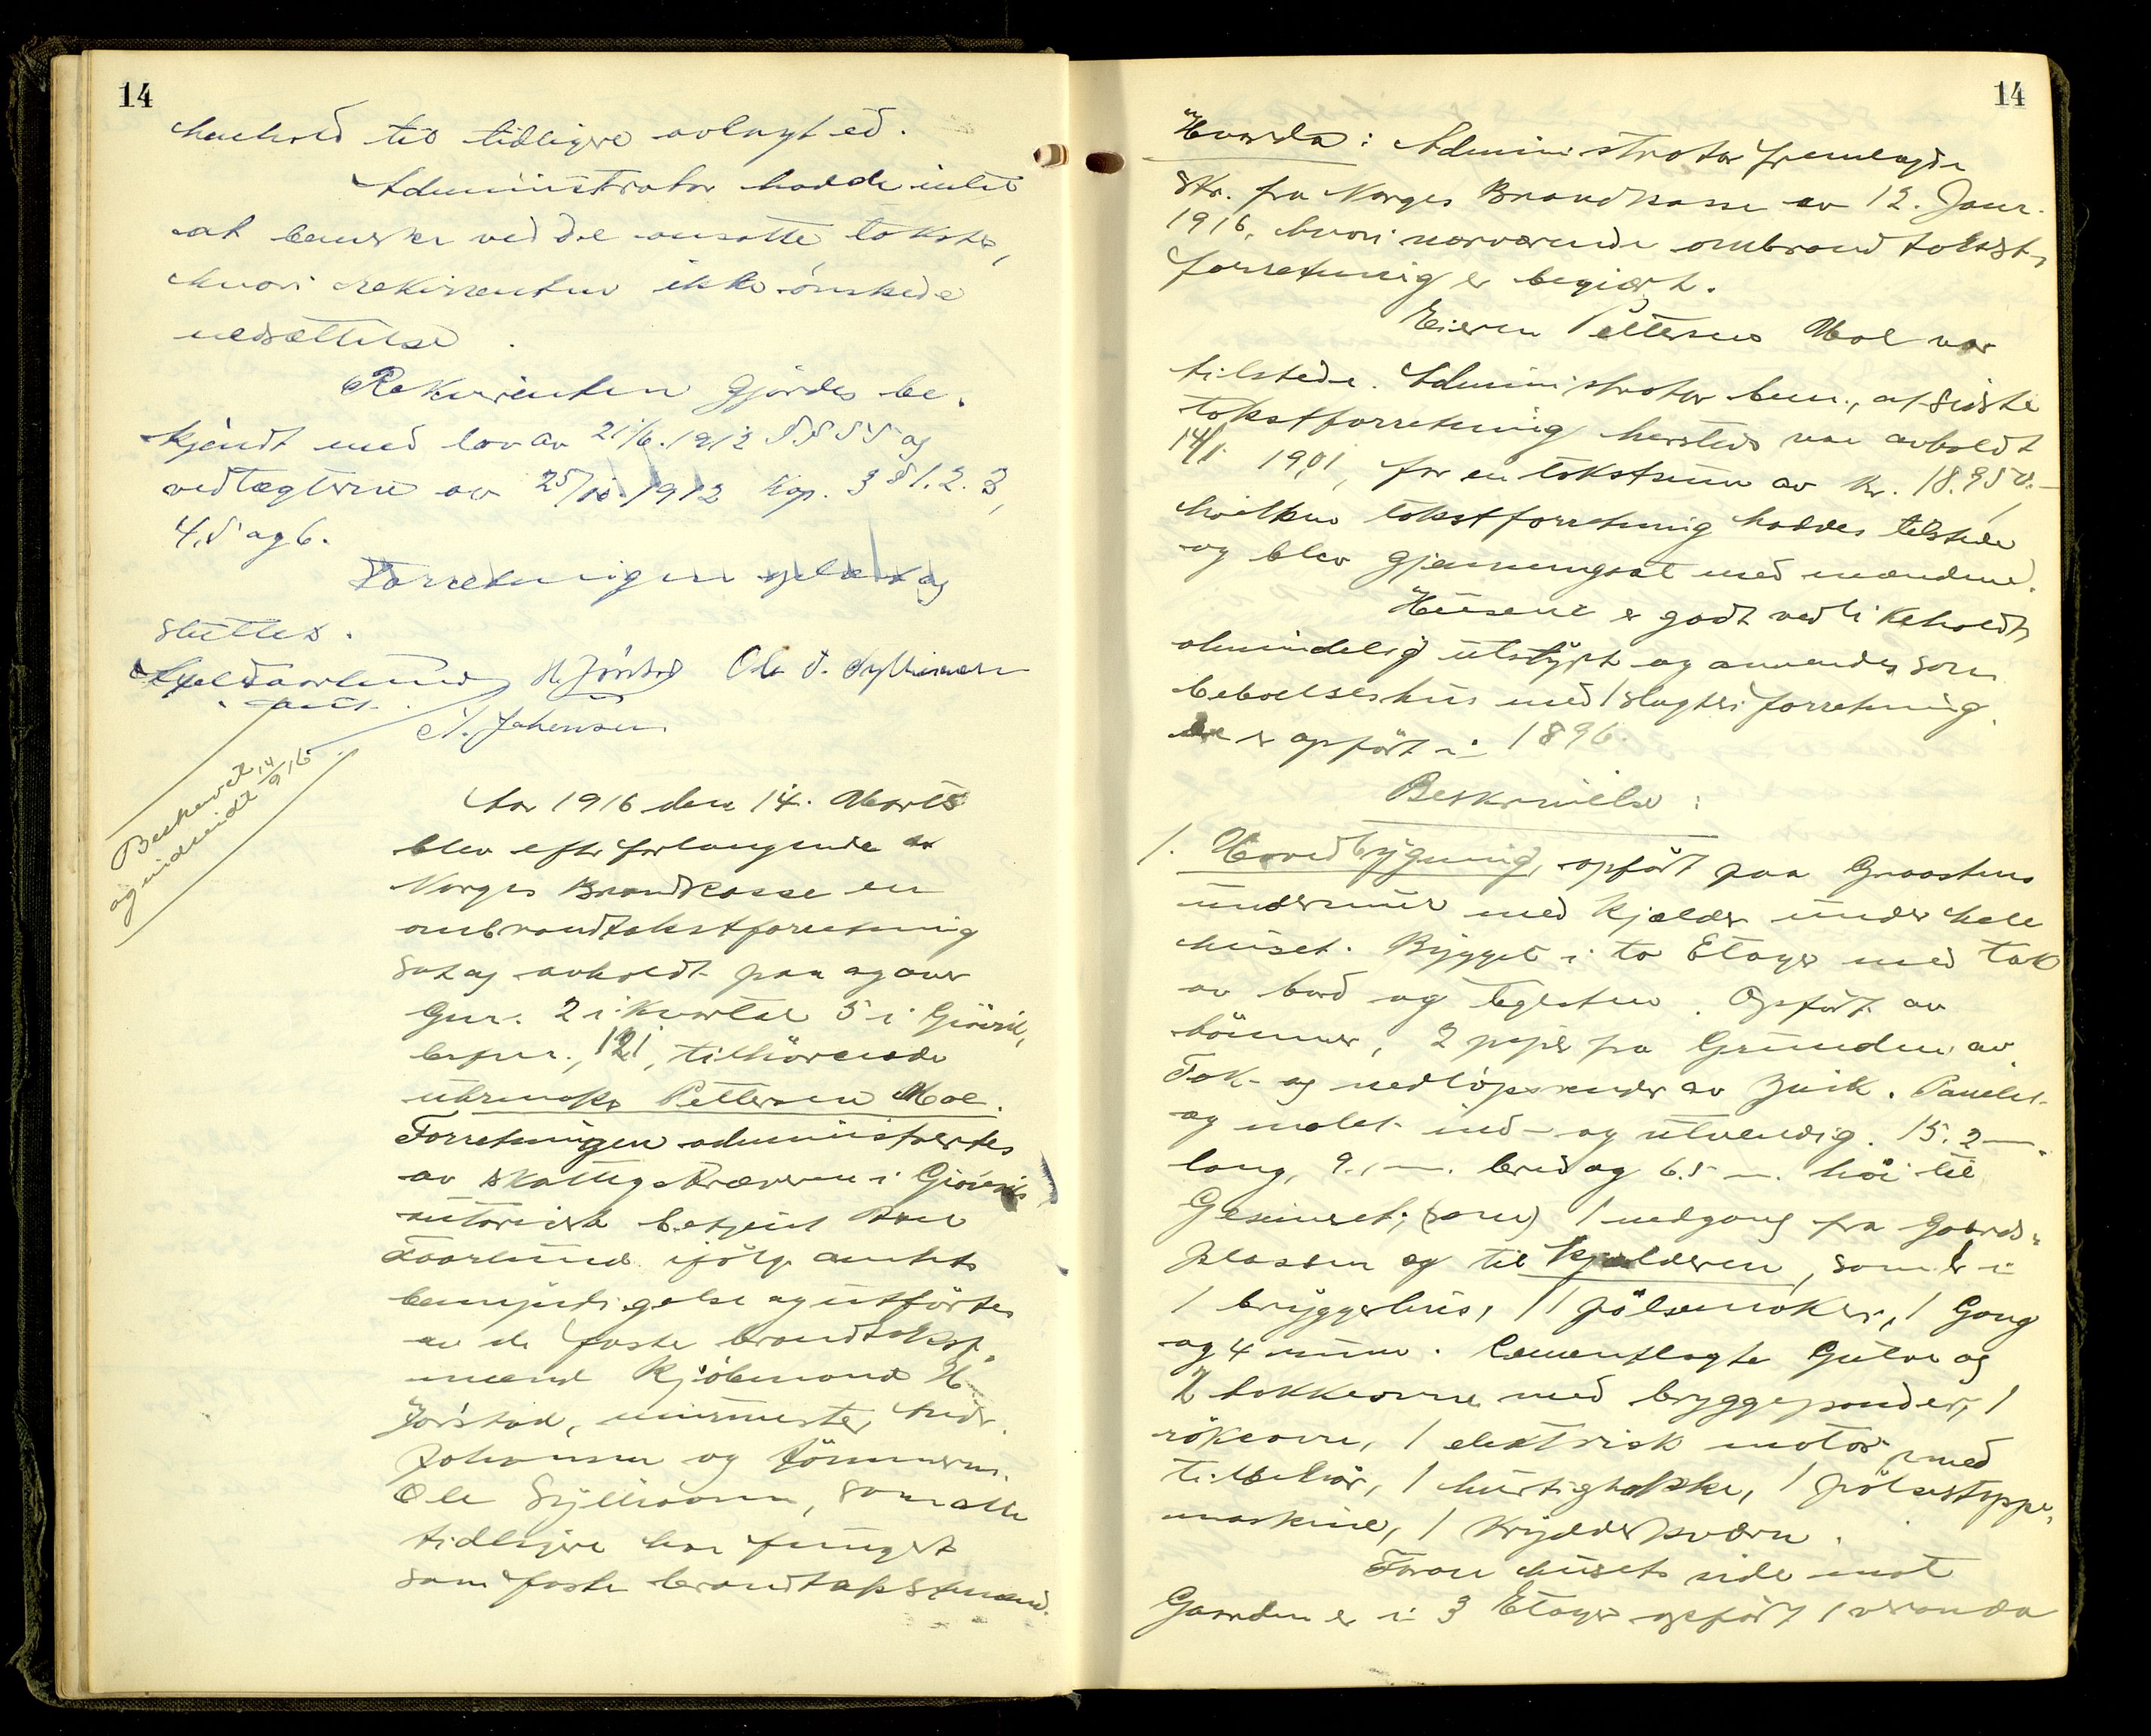 14
henhold til tidligere avlagt ed.
Administrator hadde intet
at bemerke ved de ansatte takster,
hvori rekvirenten ikke ønskede
nedsættelse.
Rekvirenten gjordes be-
kjendt med lov av 21/6. 1912 §§ 55 og
vedtægterne av 25/10. 1912 Kap. 3 § 1. 2. 3,
4, 5 og 6.
Forretningen oplæst og
sluttet.
Axel Taarlund H Jörstad Ole S. Sylliaasen
aut.
A. Johansen
Beskrevet 14/9 16
og innsendt
Aar 1916 den 14. Marts
blev efter forlangende av
Norges Brandkasse en
ombrandtakstforretning
sat og avholdt paa og over
Gnr. 2 i Kvartal 5 i Gjövik,
br.pnr. 121, tilhörende
urmaker Pettersen Moe.
Forretningen administrertes
av skattegskræveren i Gjöviks
autoriserte betjent Axel
Taarlund ifölge amtets
bemyndigelse og utförtes
av de faste brandtakst-
mænd Kjöbmand H.
Jörstad, murmester Andr.
Johansen og tömmerm.
Ole Sylliaasen, som alle
tidligere har fungert
som faste brandtakstmænd.
14
Hvorda: Administrator fremlagde
skr. fra Norges Brandkasse av 12. Janr.
1916, hvori nærværende ombrandtakst-
forretning er begjært.
Eieren Pettersen Moe var
tilstede. Administrator bem., at sidste
takstforretning hersteds var avholdt
14/1 1901, for en takstsum av kr. 18.950.-
hvilken takstforretning haddes tilstede
og blev gjennemgaat med mændene.
Husene er godt vedlikeholdt,
almindelig utstyrt og anvendes som
beboelseshus med slagteriforretning.
De er opfört i 1896.
Beskrivelse:
1. Hovedbygning, opfört paa Graastens
undermur med kjælder under hele
huset. Bygget i to Etager med tak
av bord og teglsten. Opfört av
tömmer, 2 piper fra Grunden av.
Tak- og nedlöpsrender av zink. Panelet
og malet ind- og utvendig. 15.2 m.
lang, 9.1 m. bred og 6.5 m. höi til
Gesimset; (som) 1 nedgang fra Gaards-
plassen og til kjælderen, som er i
1 bryggerhus, 1 pölsemakeri, 1 Gang
og 4 rum. Cementlagte Gulve og
2 bakkeovne med bryggepander, 1
rökeovn, 1 elektrisk motor med
tilbehör, 1 hurtighakke, 1 pölsestoppe-
maskine, 1 krydderkværn.
Foran husets side mot
Gaarden er i 3 Etager opfört 1 veranda